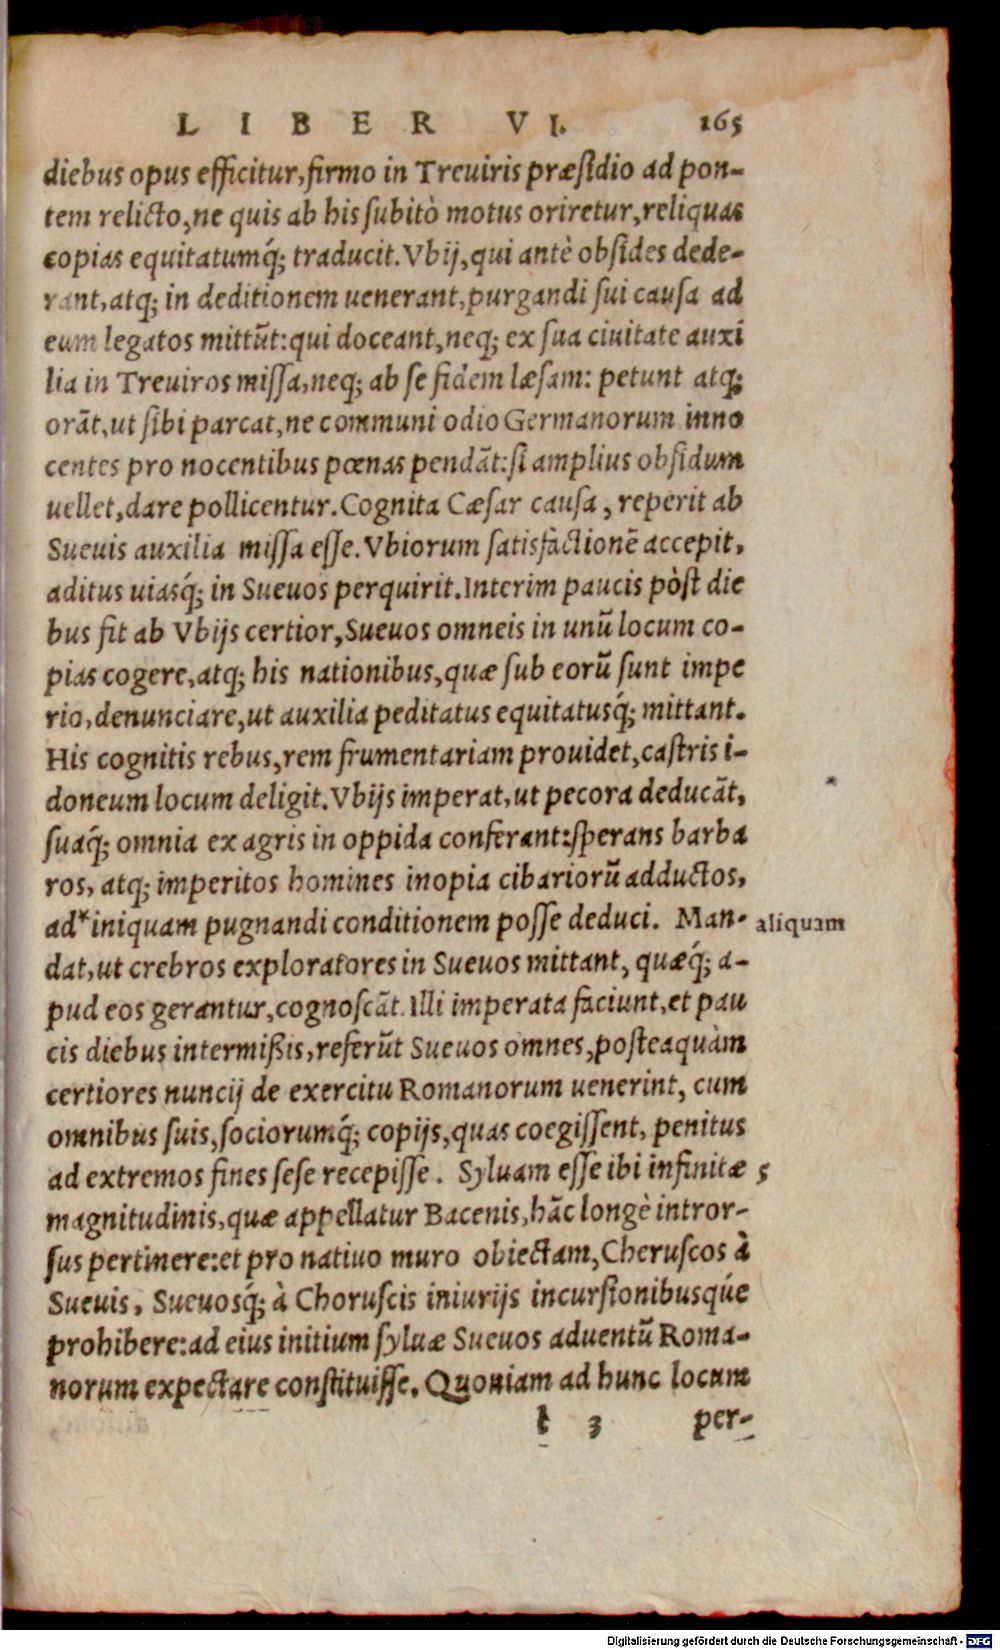 LIBER VI. 165
diebus opus efficitur, firmo in Treuiris præsidio ad pon-
tem relicto, ne quis ab his subitò motus oriretur, reliquas
copias equitatumq́; traducit. Vbij, qui antè obsides dede-
rant, atq; in deditionem uenerant, purgandi sui causa ad
eum legatos mittũt: qui doceant, neq; ex sua ciuitate auxi
lia in Treuiros missa, neq; ab se fidem læsam: petunt atq;
orãt, ut sibi parcat, ne communi odio Germanorum inno
centes pro nocentibus pœnas pendãt: si amplius obsidum
uellet, dare pollicentur. Cognita Cæsar causa, reperit ab
Sueuis auxilia missa esse. Vbiorum satisfactionẽ accepit,
aditus uiasq́; in Sueuos perquirit. Interim paucis pòst die
bus fit ab Vbijs certior, Sueuos omneis in unũ locum co-
pias cogere, atq; his nationibus, quæ sub eorũ sunt impe
rio, denunciare, ut auxilia peditatus equitatusq́; mittant.
His cognitis rebus, rem frumentariam prouidet, castris i-
doneum locum deligit. Vbijs imperat, ut pecora deducãt,
suaq́; omnia ex agris in oppida conferant: sperans barba
ros, atq; imperitos homines inopia cibariorũ adductos,
ad* iniquam pugnandi conditionem posse deduci. Man- aliquam
dat, ut crebros exploratores in Sueuos mittant, quæq́; a-
pud eos gerantur, cognoscãt. Illi imperata faciunt, et pau
cis diebus intermißis, referũt Sueuos omnes, posteaquàm
certiores nuncij de exercitu Romanorum uenerint, cum
omnibus suis, sociorumq́; copijs, quas coegissent, penitus
ad extremos fines sese recepisse. Syluam esse ibi infinitæ 5
magnitudinis, quæ appellatur Bacenis, hãc longè intror-
sus pertinere: et pro natiuo muro obiectam, Cheruscos à
Sueuis, Sueuosq́; à Choruscis iniurijs incursionibusqúe
prohibere: ad eius initium syluæ Sueuos aduentũ Roma-
norum expectare constituisse. Quoniam ad hunc locum
t 3 per-
Digitalisierung gefördert durch die Deutsche Forschungsgemeinschaft - DFG